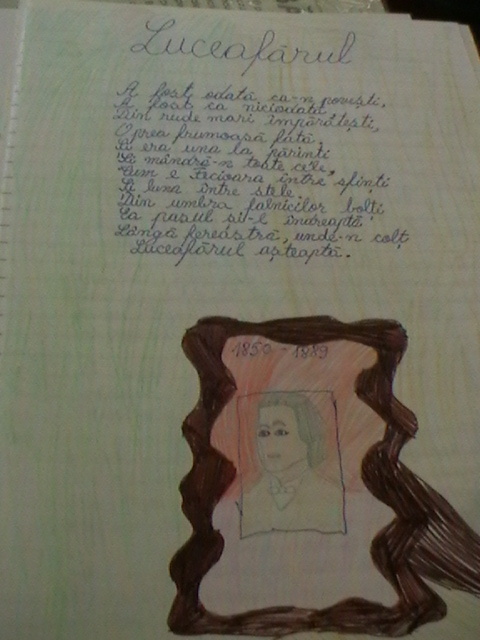 Luceafărul
A fost odată ca-n povești,
A fost ca niciodată
Din rude mari împărătești,
O prea frumoasă fată.
Și era una la părinți
Și mândră-n toate cele,
Cum e Fecioara între sfinți
Și luna între stele.
Din umbra falnicilor bolți
Ea pasul și-l îndreaptă
Lângă fereastră, unde-n colț
Luceafărul așteaptă.
1850 - 1889